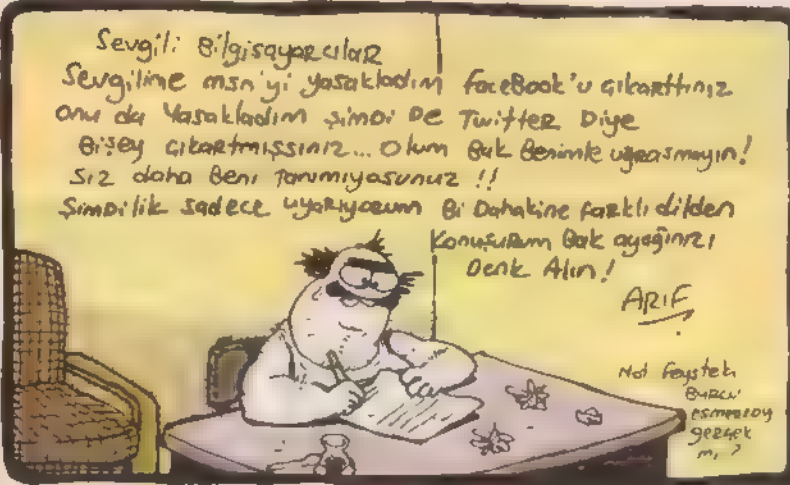 Sevgili Bilgisayarcılar
Sevgilime msn'yi yasakladım faceBook'u çıkarttınız
onu da Yasakladım şimdi De Twitter Diye
Bişey çıkartmışsınız... Olum Bak Benimle uğraşmayın!
Siz daha Beni Tanımıyosunuz !!
Şimdilik sadece uyarıyorum Bi Dahakine farklı dilden
Konuşurum Bak ayağınızı
Denk Alın!
ARIF
Not Feysteki
Burcu
esmersoy
gerçek
mi ?